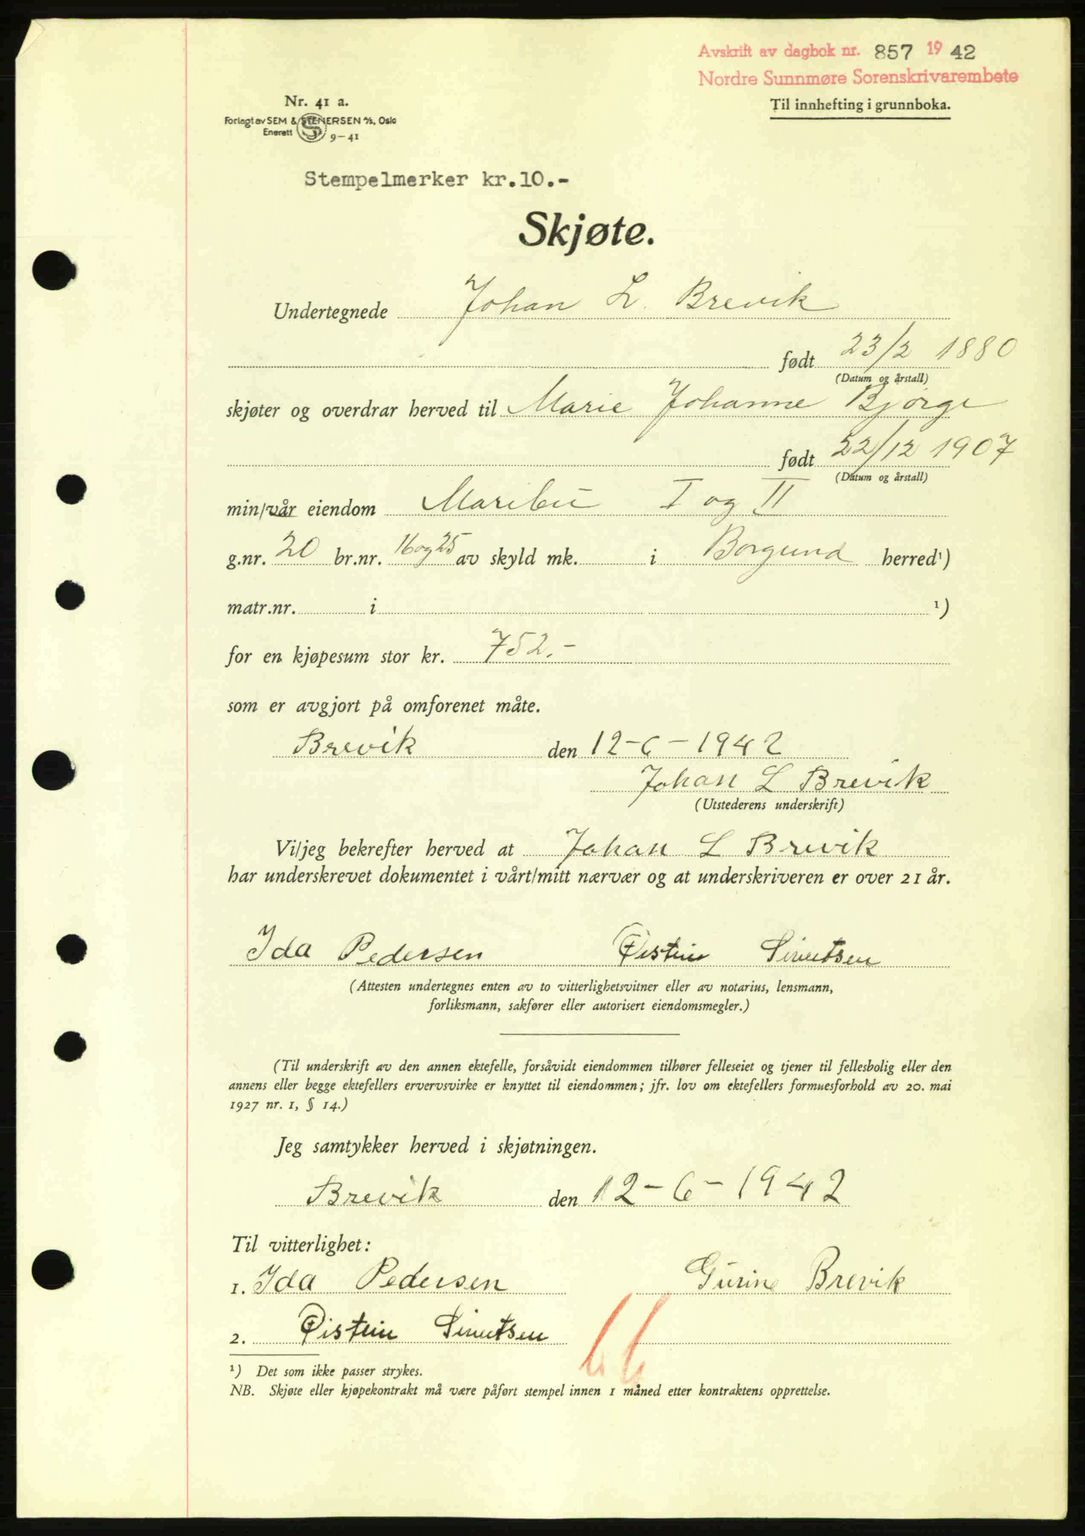 Avskrift av dagbok nr. 857 1942
Nordre Sunnmøre Sorenskrivarembete
Til innhefting i grunnboka.
Nr. 41 a.
Forlagt av SEM & STENERSEN A/S, Oslo
Enerett 9-41
Stempelmerker kr.10.-
Skjøte.
Undertegnede Johan L. Brevik
født 23/2 1880
(Datum og årstall)
skjøter og overdrar herved til Marie Johanne Bjørge
født 22/12 1907
(Datum og årstall)
min/vår eiendom Maribu I og II
g.nr. 20 br.nr. 16 og 25 av skyld mk. i Borgund herred¹)
matr.nr. i ¹)
for en kjøpesum stor kr. 752.-
som er avgjort på omforenet måte.
Brevik den 12-6-1942
Johan L Brevik
(Utstederens underskrift)
Vi/jeg bekrefter herved at Johan L Brevik
har underskrevet dokumentet i vårt/mitt nærvær og at underskriveren er over 21 år.
Ida Pedersen Øistein
(Attesten undertegnes enten av to vitterlighetsvitner eller av notarius, lensmann,
forliksmann, sakfører eller autorisert eiendomsmegler.)
(Til underskrift av den annen ektefelle, forsåvidt eiendommen tilhører felleseiet og tjener til fellesbolig eller den
annens eller begge ektefellers ervervsvirke er knyttet til eiendommen; jfr. lov om ektefellers formuesforhold av 20. mai
1927 nr. 1, § 14.)
Jeg samtykker herved i skjøtningen.
Brevik den 12-6-1942
Til vitterlighet:
1. Ida Pedersen Gurine Brevik
2. Øistein
¹) Det som ikke passer strykes.
NB. Skjøte eller kjøpekontrakt må være påført stempel innen 1 måned etter kontraktens opprettelse.